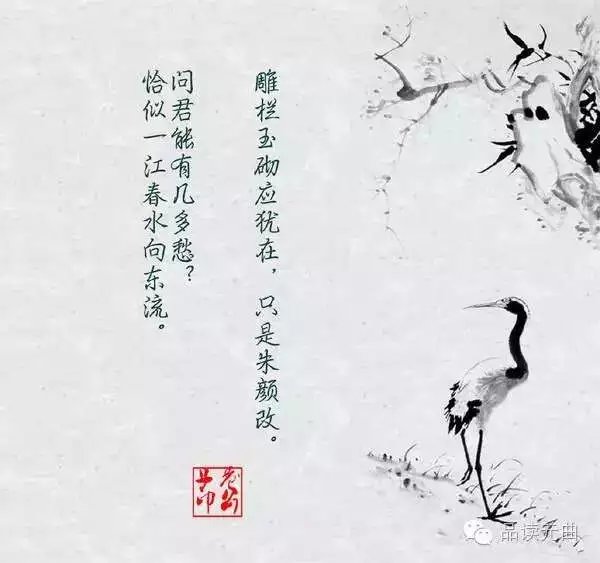 雕栏玉砌应犹在，只是朱颜改。
问君能有几多愁？
恰似一江春水向东流。
品读元曲